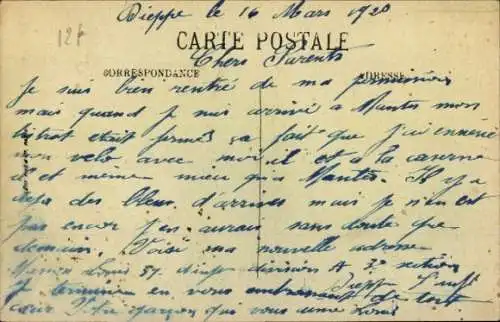 12f
Dieppe le 16 Mars 1920
CARTE POSTALE
Chers Parents
CORRESPONDANCE ADRESSE
Je suis bien rentré de ma permission
mais quand je suis arrivé a Mantes mon
bistrot etait fermé ça fait que j'ai emmené
mon velo avec moi il et a la caserne
il et meme mieu qu'a Mantes. Il y a
deja des bleus d'arrives mais je n'en est
pas encor j'en aurais sans doute que
demain. Voisi ma nouvelle adresse
Louis 5e division A 3e section
Dieppe
Je termine en vous embrassant de tout
cœur Votre garçon qui vous aime Louis